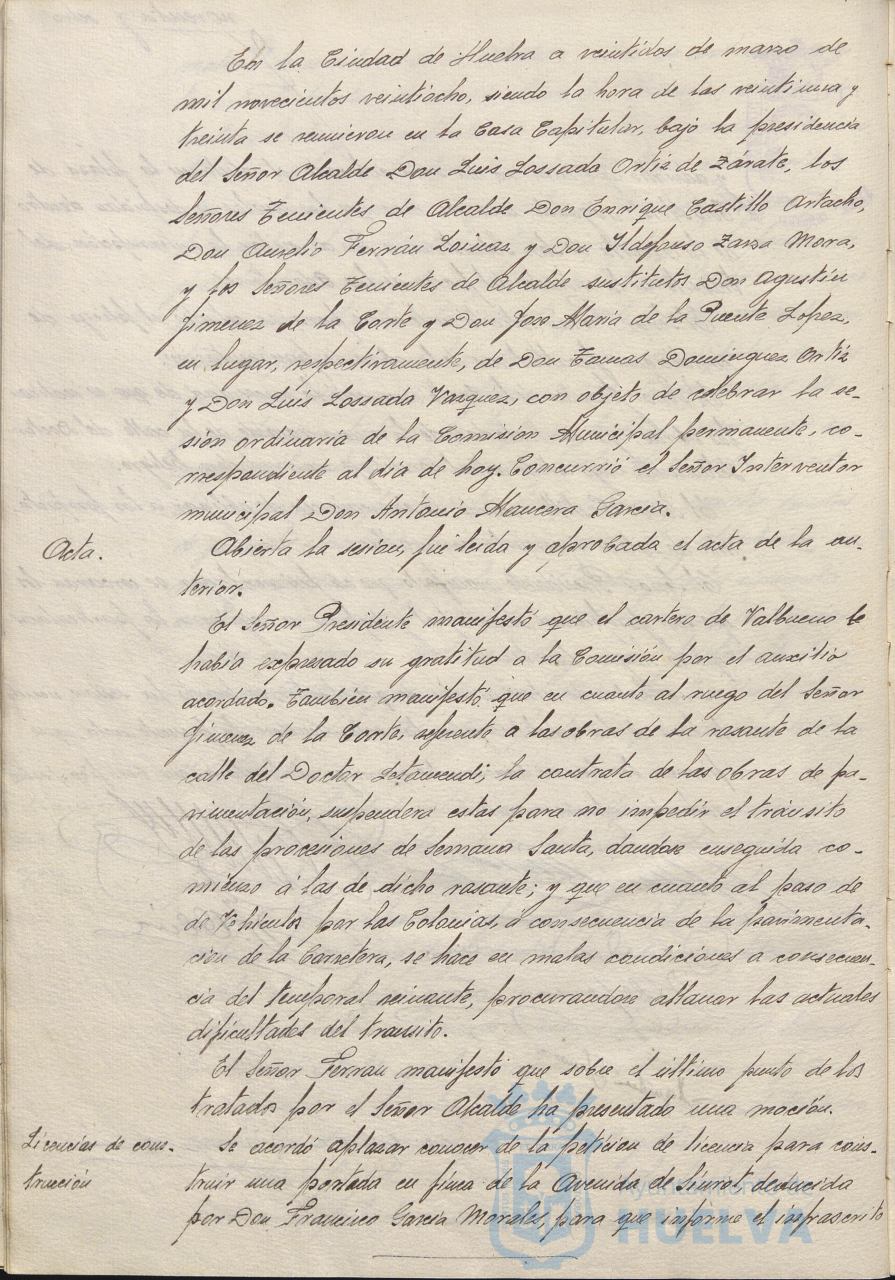 En la Ciudad de Huelva a veintidos de marzo de
mil novecientos veintiocho, siendo la hora de las veintiuna y
treinta se reunieron en la Casa Capitular, bajo la presidencia
del Señor Alcalde Don Luis Lossada Ortiz de Zárate, los
Señores Tenientes de Alcalde Don Enrique Castillo Artacho,
Don Aurelio Ferrán Loinaz y Don Ildefonso Zarza Mora,
y los Señores Tenientes de Alcalde sustitutos Don Agustin
Jimenez de la Corte y Don Jose Maria de la Puente Lopez,
en lugar, respectivamente, de Don Tomas Dominguez Ortiz
y Don Luis Lossada Vazquez, con objeto de celebrar la se-
sión ordinaria de la Comision Municipal permanente, co-
rrespondiente al dia de hoy. Concurrió el Señor Interventor
municipal Don Antonio Mancera Garcia.
Acta. Abierta la sesion, fué leida y aprobada el acta de la an-
terior.
El Señor Presidente manifestó que el cartero de Valbueno le
habia expresado su gratitud a la Comisión por el auxilio
acordado. Tambien manifestó que en cuanto al ruego del Señor
Jimenez de la Corte, referente a las obras de la rasante de la
calle del Doctor Letamendi; la contrata de las obras de pa-
vimentación, suspendera estas para no impedir el tránsito
de las procesiones de Semana Santa, dandose enseguida co-
mienzo á las de dicho rasante; y que en cuanto al paso de
de Vehículos por las Colonias, a consecuencia de la pavimenta-
ción de la Carretera, se hace en malas condiciones a consecuen-
cia del temporal reinante, procurandose allanar las actuales
dificultades del transito.
El Señor Ferran manifestó que sobre el último punto de los
tratados por el Señor Alcalde ha presentado una moción.
Licencias de cons- Se acordó aplazar conocer de la peticion de licencia para cons-
trucción truir una portada en finca de la Avenida de Siurot, deducida
por Don Francisco Garcia Morales, para que informe el infrascrito
Ayuntamiento de
HUELVA